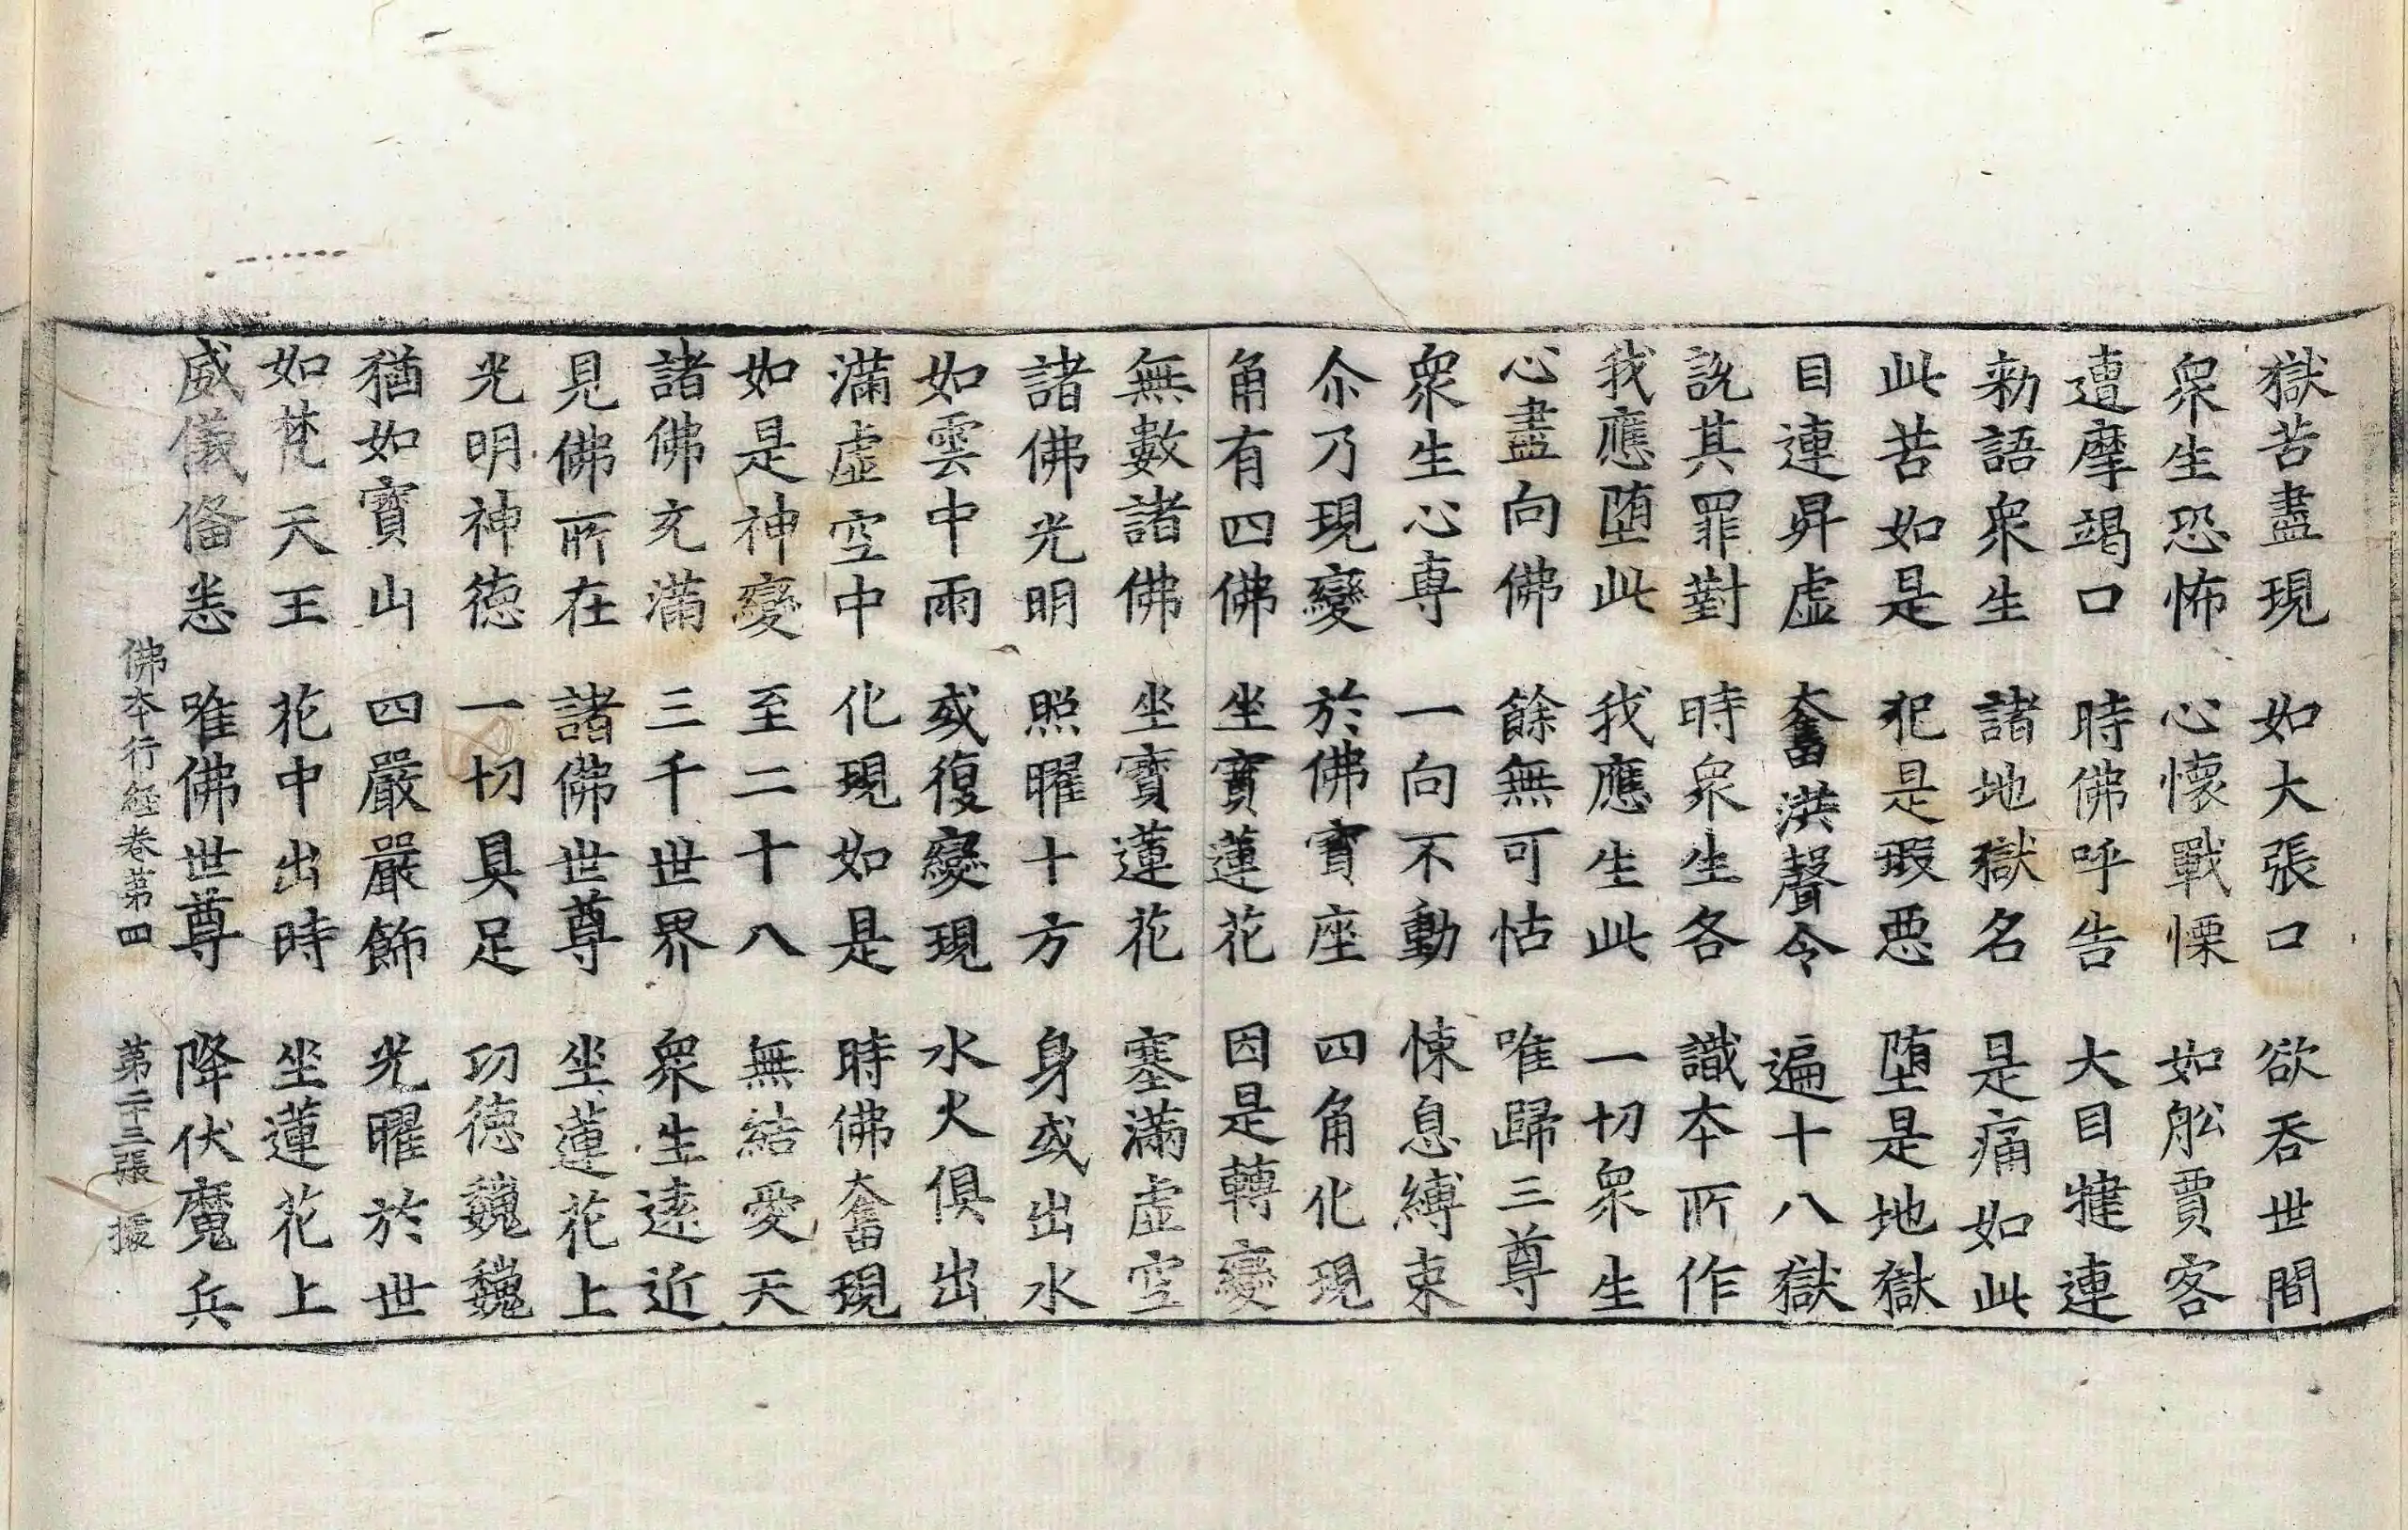 獄苦盡現 如大張口 欲吞世間
衆生恐怖 心懷戰慄 如舩賈客
遭摩竭口 時佛呼告 大目揵連
勑語衆生 諸地獄名 是痛如此
此苦如是 犯是瑕惡 堕是地獄
目連昇虛 奮洪聲令 遍十八獄
說其罪對 時衆生各 識本所作
我應堕此 我應生此 一切衆生
心盡向佛 餘無可怙 唯歸三尊
衆生心專 一向不動 悚息縛束
尒乃現變 於佛寶座 四角化現
角有四佛 坐寶蓮花 因是轉變
無數諸佛 坐寶蓮花 塞滿虛空
諸佛光明 照曜十方 身或出水
如雲中雨 或復變現 水火俱出
滿虛空中 化現如是 時佛奮現
如是神變 至二十八 無結愛天
諸佛充滿 三千世界 衆生遠近
見佛所在 諸佛世尊 坐蓮花上
光明神德 一切具足 功德巍巍
猶如寶山 四嚴嚴飾 光曜於世
如梵天王 花中出時 坐蓮花上
威儀俻悉 唯佛世尊 降伏魔兵
佛本行經卷第四 第二十三張